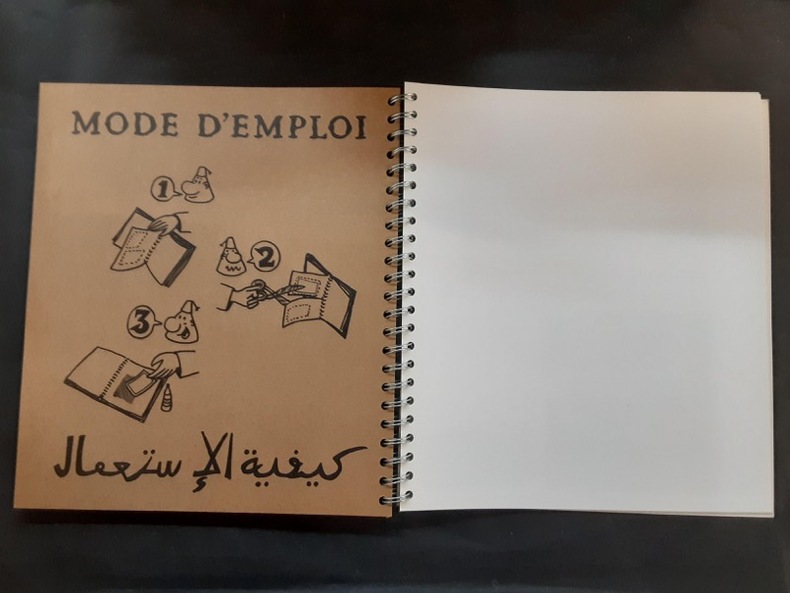 MODE D'EMPLOI
1
2
3
كيفية الإستعمال